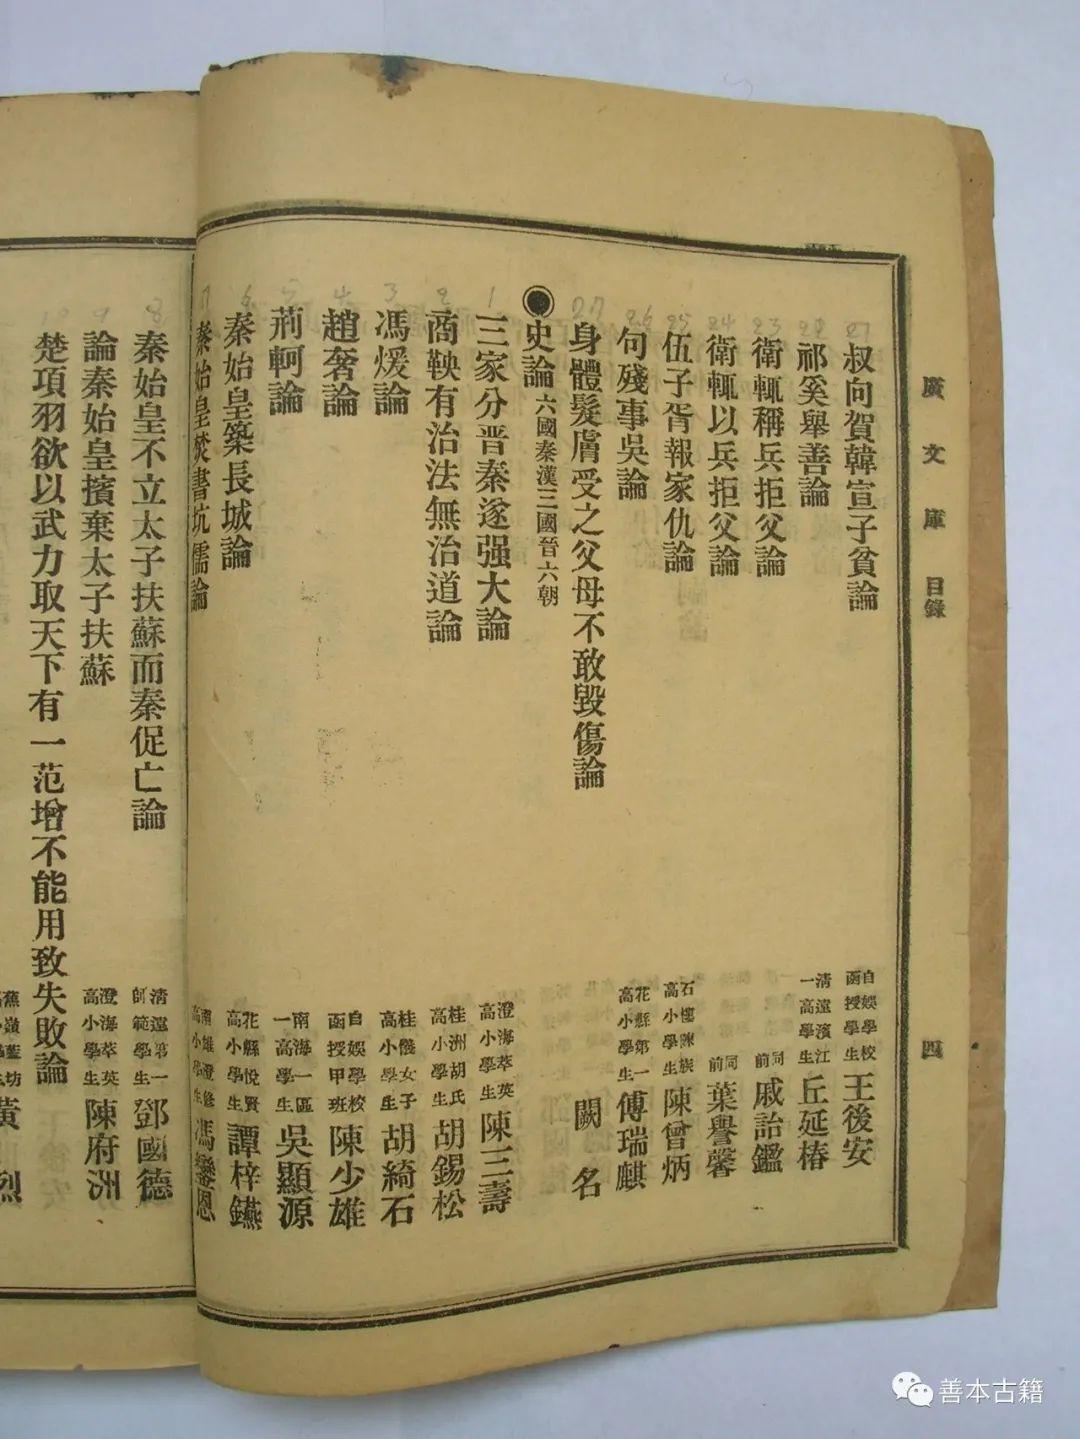 廣文庫 目錄 四
21 叔向賀韓宣子貧論 自娛學校函授學生 王後安
22 祁奚舉善論 清遠濱江一高學生 丘延椿
23 衛輒稱兵拒父論 同前 戚詒鑑
24 衛輒以兵拒父論 同前 葉譽馨
25 伍子胥報家仇論 石樓陳族高小學生 陳曾炳
26 句殘事吳論 花縣第一高小學生 傅瑞麒
27 身體髮膚受之父母不敢毀傷論 闕名
史論 六國秦漢三國晉六朝
1 三家分晋秦遂强大論 澄海萃英高小學生 陳三壽
2 商鞅有治法無治道論 桂洲胡氏高小學生 胡錫松
3 馮煖論 桂洲女子高小學生 胡綺石
4 趙奢論 自娛學校函授甲班 陳少雄
5 荊軻論 南海一區一高學生 吳顯源
6 秦始皇築長城論 花縣悅賢高小學生 譚梓鑣
7 秦始皇焚書坑儒論 高小學生 馮鑾恩
8 秦始皇不立太子扶蘇而秦促亡論 清遠第一師範學生 鄧國德
9 論秦始皇擯棄太子扶蘇 澄海萃英高小學生 陳府洲
10 楚項羽欲以武力取天下有一范增不能用致失敗論 蕉嶺藍坊高小學生 黃烈
善本古籍